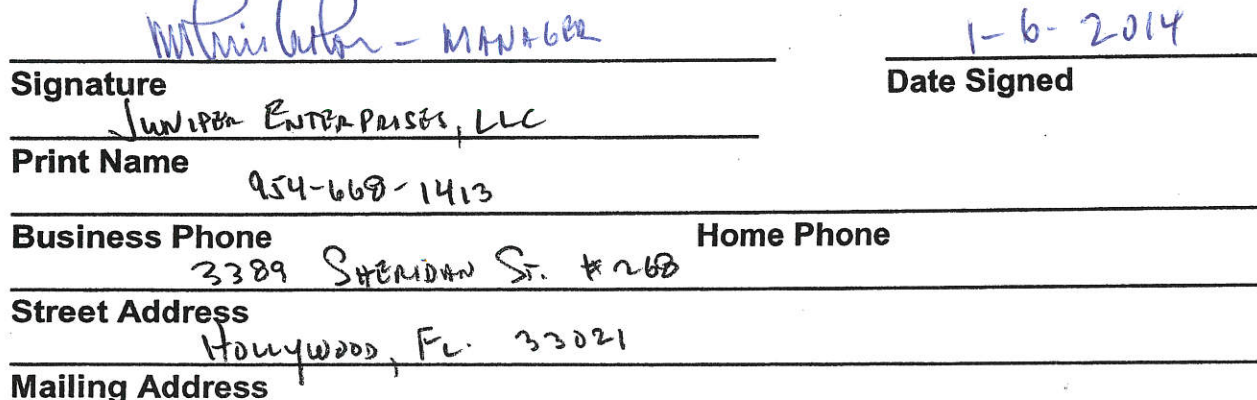 - MANAGER 1-6-2014
Signature Date Signed
JUNIPER ENTERPRISES, LLC
Print Name
954-668-1413
Business Phone Home Phone
3389 SHERIDAN ST. #268
Street Address
HOLLYWOOD, FL. 33021
Mailing Address